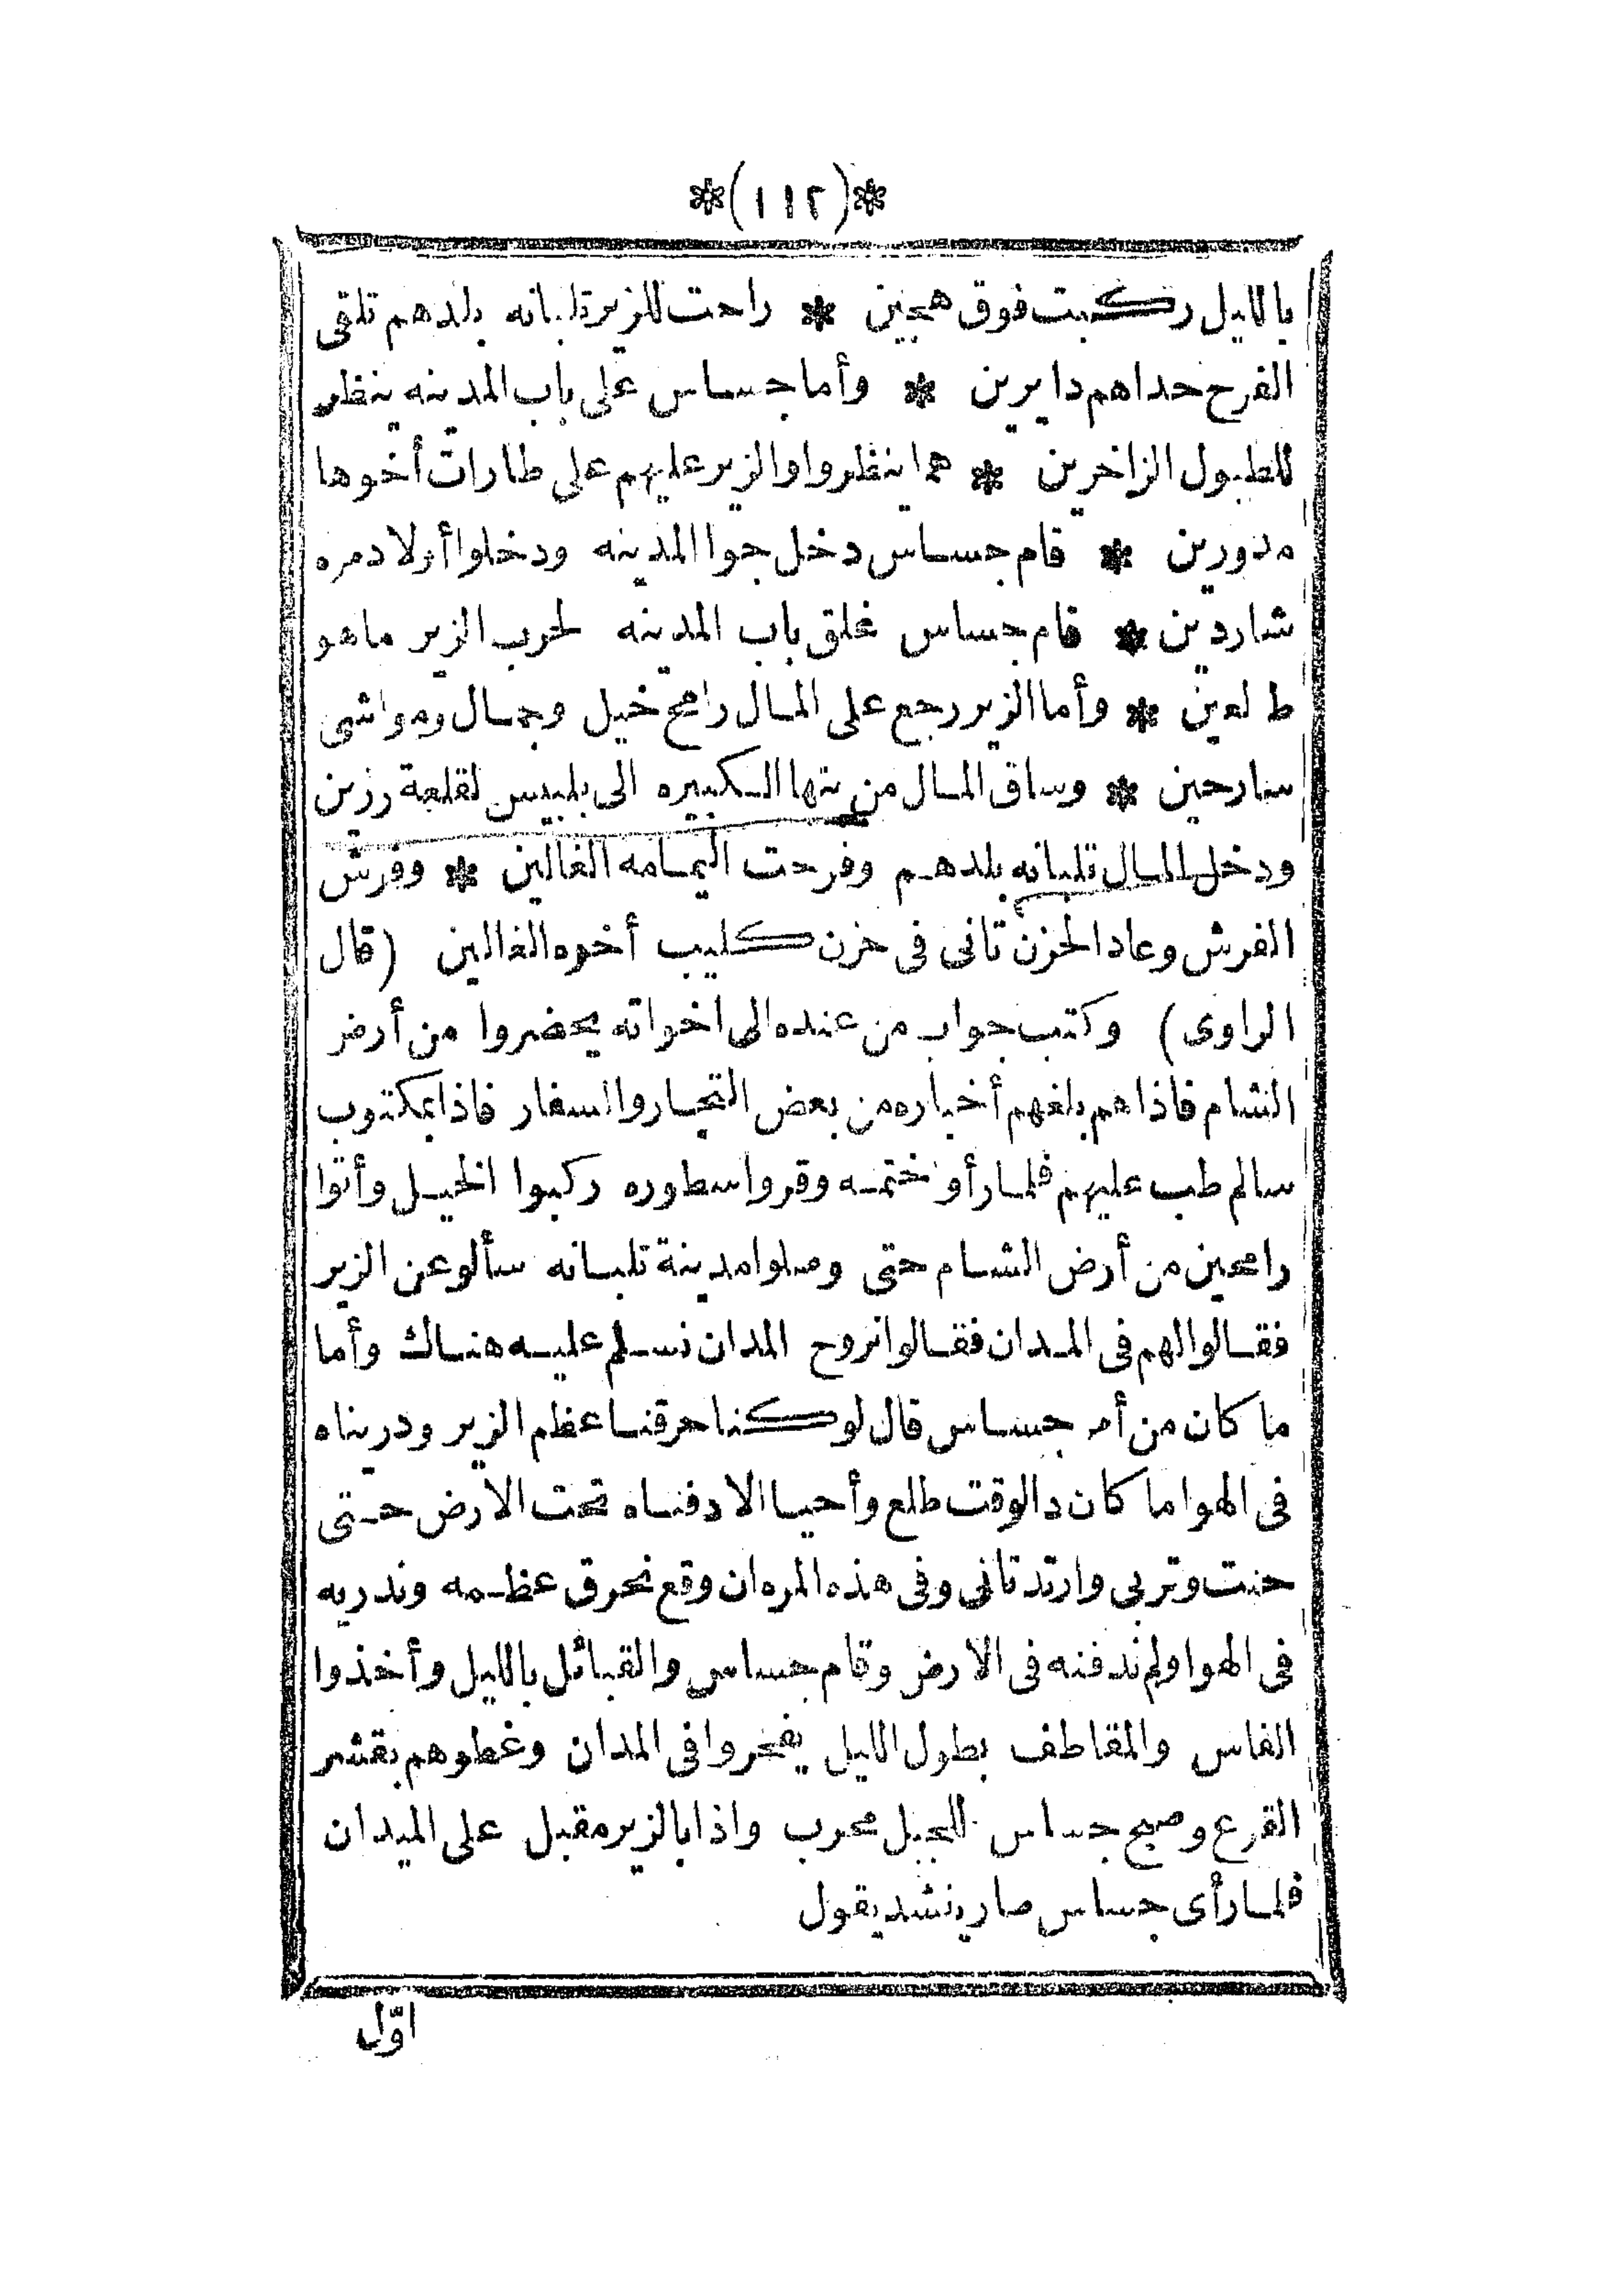 *(١١٢)*
بالليل ركبت فوق هجين * راحت للزير تلبانه بلدهم تلقى
الفرح حداهم دايرين * وأما جساس على باب المدينه ينظر
للطبول الزاخرين * هما ينظروا والزير عليهم على طارات أخوها
مدورين * قام جساس دخل جوا المدينه ودخلوا أولاد مره
شاردين * قام جساس غلق باب المدينه لحرب الزير ماهو
طالعين * وأما الزير رجع على المال رامح خيل وجمال ومواشى
سارحين * وساق المال من بتها الكبيره الى بلبيس لقلعة رزين
ودخل المال تلبانه بلدهم وفرحت اليمامه الغالين * وفرش
الفرش وعاد الحزن تانى فى حزن كليب أخوه الغالين (قال
الراوى) وكتب جواب من عنده الى اخواته يحضروا من أرض
الشام فاذاهم بلغهم أخباره من بعض التجار والسفار فاذا بمكتوب
سالم طب عليهم فلما رأو ختمه وقروا سطوره ركبوا الخيل وأتوا
رامحين من أرض الشام حتى وصلوا مدينة تلبانه سألو عن الزير
فقالوا لهم فى المدان فقالوا نروح المدان نسلم عليه هناك وأما
ما كان من أمر جساس قال لو كنا حرقنا عظم الزير ودريناه
فى الهوا ما كان دالوقت طلع وأحيا الا دفناه تحت الارض حتى
حنت وتربى وارتد تانى وفى هذه المره ان وقع نحرق عظمه وندريه
فى الهوا ولم ندفنه فى الارض وقام جساس والقبائل بالليل وأخذوا
الفاس والمقاطف بطول الليل يفجروا فى المدان وغطوهم بقشر
القرع وصبح جساس للجبل محرب واذا بالزير مقبل على الميدان
فلما رأى جساس صار ينشد يقول
اوّل